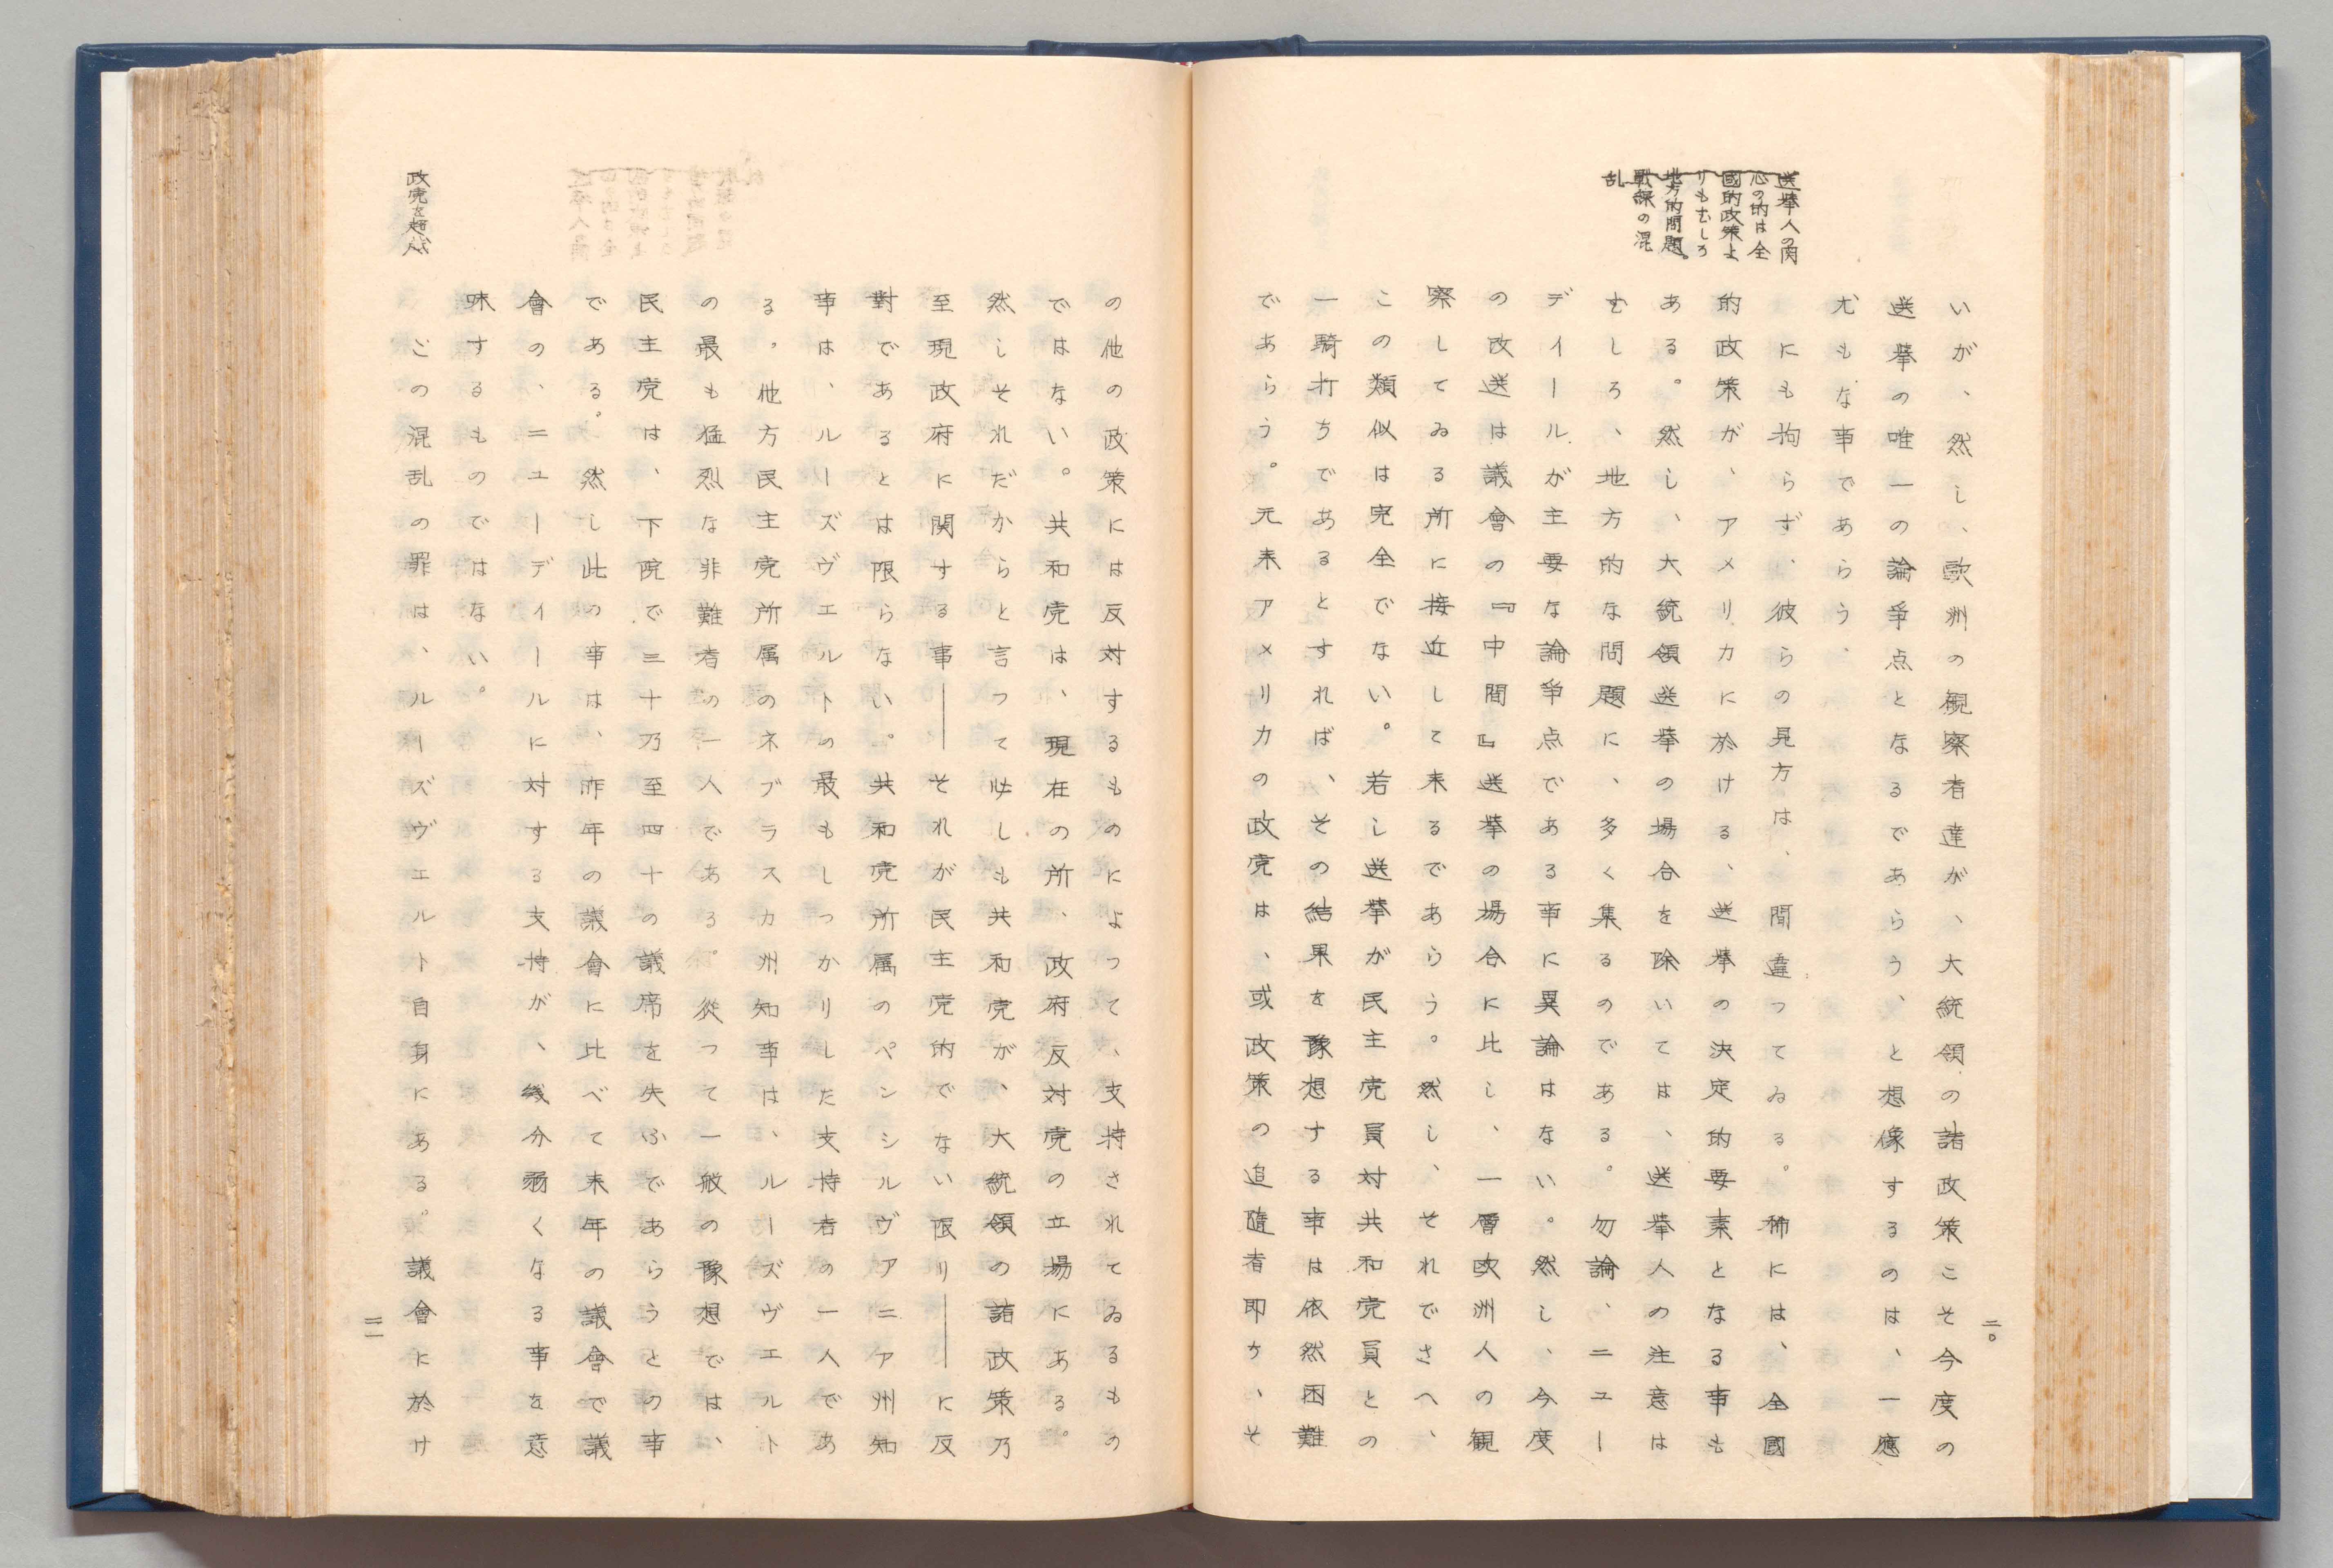 選挙人の関
心の的は全
國的政策よ
りもむしろ
地方的問題。
戰線の混
乱
いが、然し、歐洲の観察者達が、大統領の諸政策こそ今度の
選挙の唯一の論爭点となるであらう、と想像するのは、一應
尤もな事であらう、
にも拘らず、彼らの見方は、間違ってゐる。稀には、全國
的政策が、アメリカに於ける、選挙の決定的要素となる事も
ある。然し、大統領選挙の場合を除いては、選挙人の注意は
むしろ、地方的な問題に、多く集るのである。勿論、ニュー
ディールが主要な論爭点である事に異論はない。然し、今度
の改選は議會の『中間』選挙の場合に比し、一層欧洲人の観
察してゐる所に接近して来るであらう。然し、それでさへ、
この類似は完全でない。若し選挙が民主党員対共和党員との
一騎打ちであるとすれば、その結果を豫想する事は依然困難
であらう。元来アメリカの政党は、或政策の追隨者即ち、そ
二〇
の他の政策には反対するものによって、支持されてゐるもの
ではない。共和党は、現在の所、政府反対党の立場にある。
然しそれだからと言って必しも共和党が、大統領の諸政策乃
至現政府に関する事――それが民主党的でない限り――に反
對であるとは限らない。共和党所属のペンシルヴアニア州知
事は、ルーズヴエルトの最もしっかりした支持者の一人であ
る。他方民主党所属のネブラスカ州知事は、ルーズヴエルト
の最も猛烈な非難者の一人である。從って一般の豫想では、
民主党は、下院で三十乃至四十の議席を失ふであらうとの事
である。然し此の事は、昨年の議會に比べて来年の議會で議
會の、ニューディールに対する支持が、幾分弱くなる事を意
味するものではない。
政党を超へ
この混乱の罪は、ルーズヴェルト自身にある。議會に於け
二一